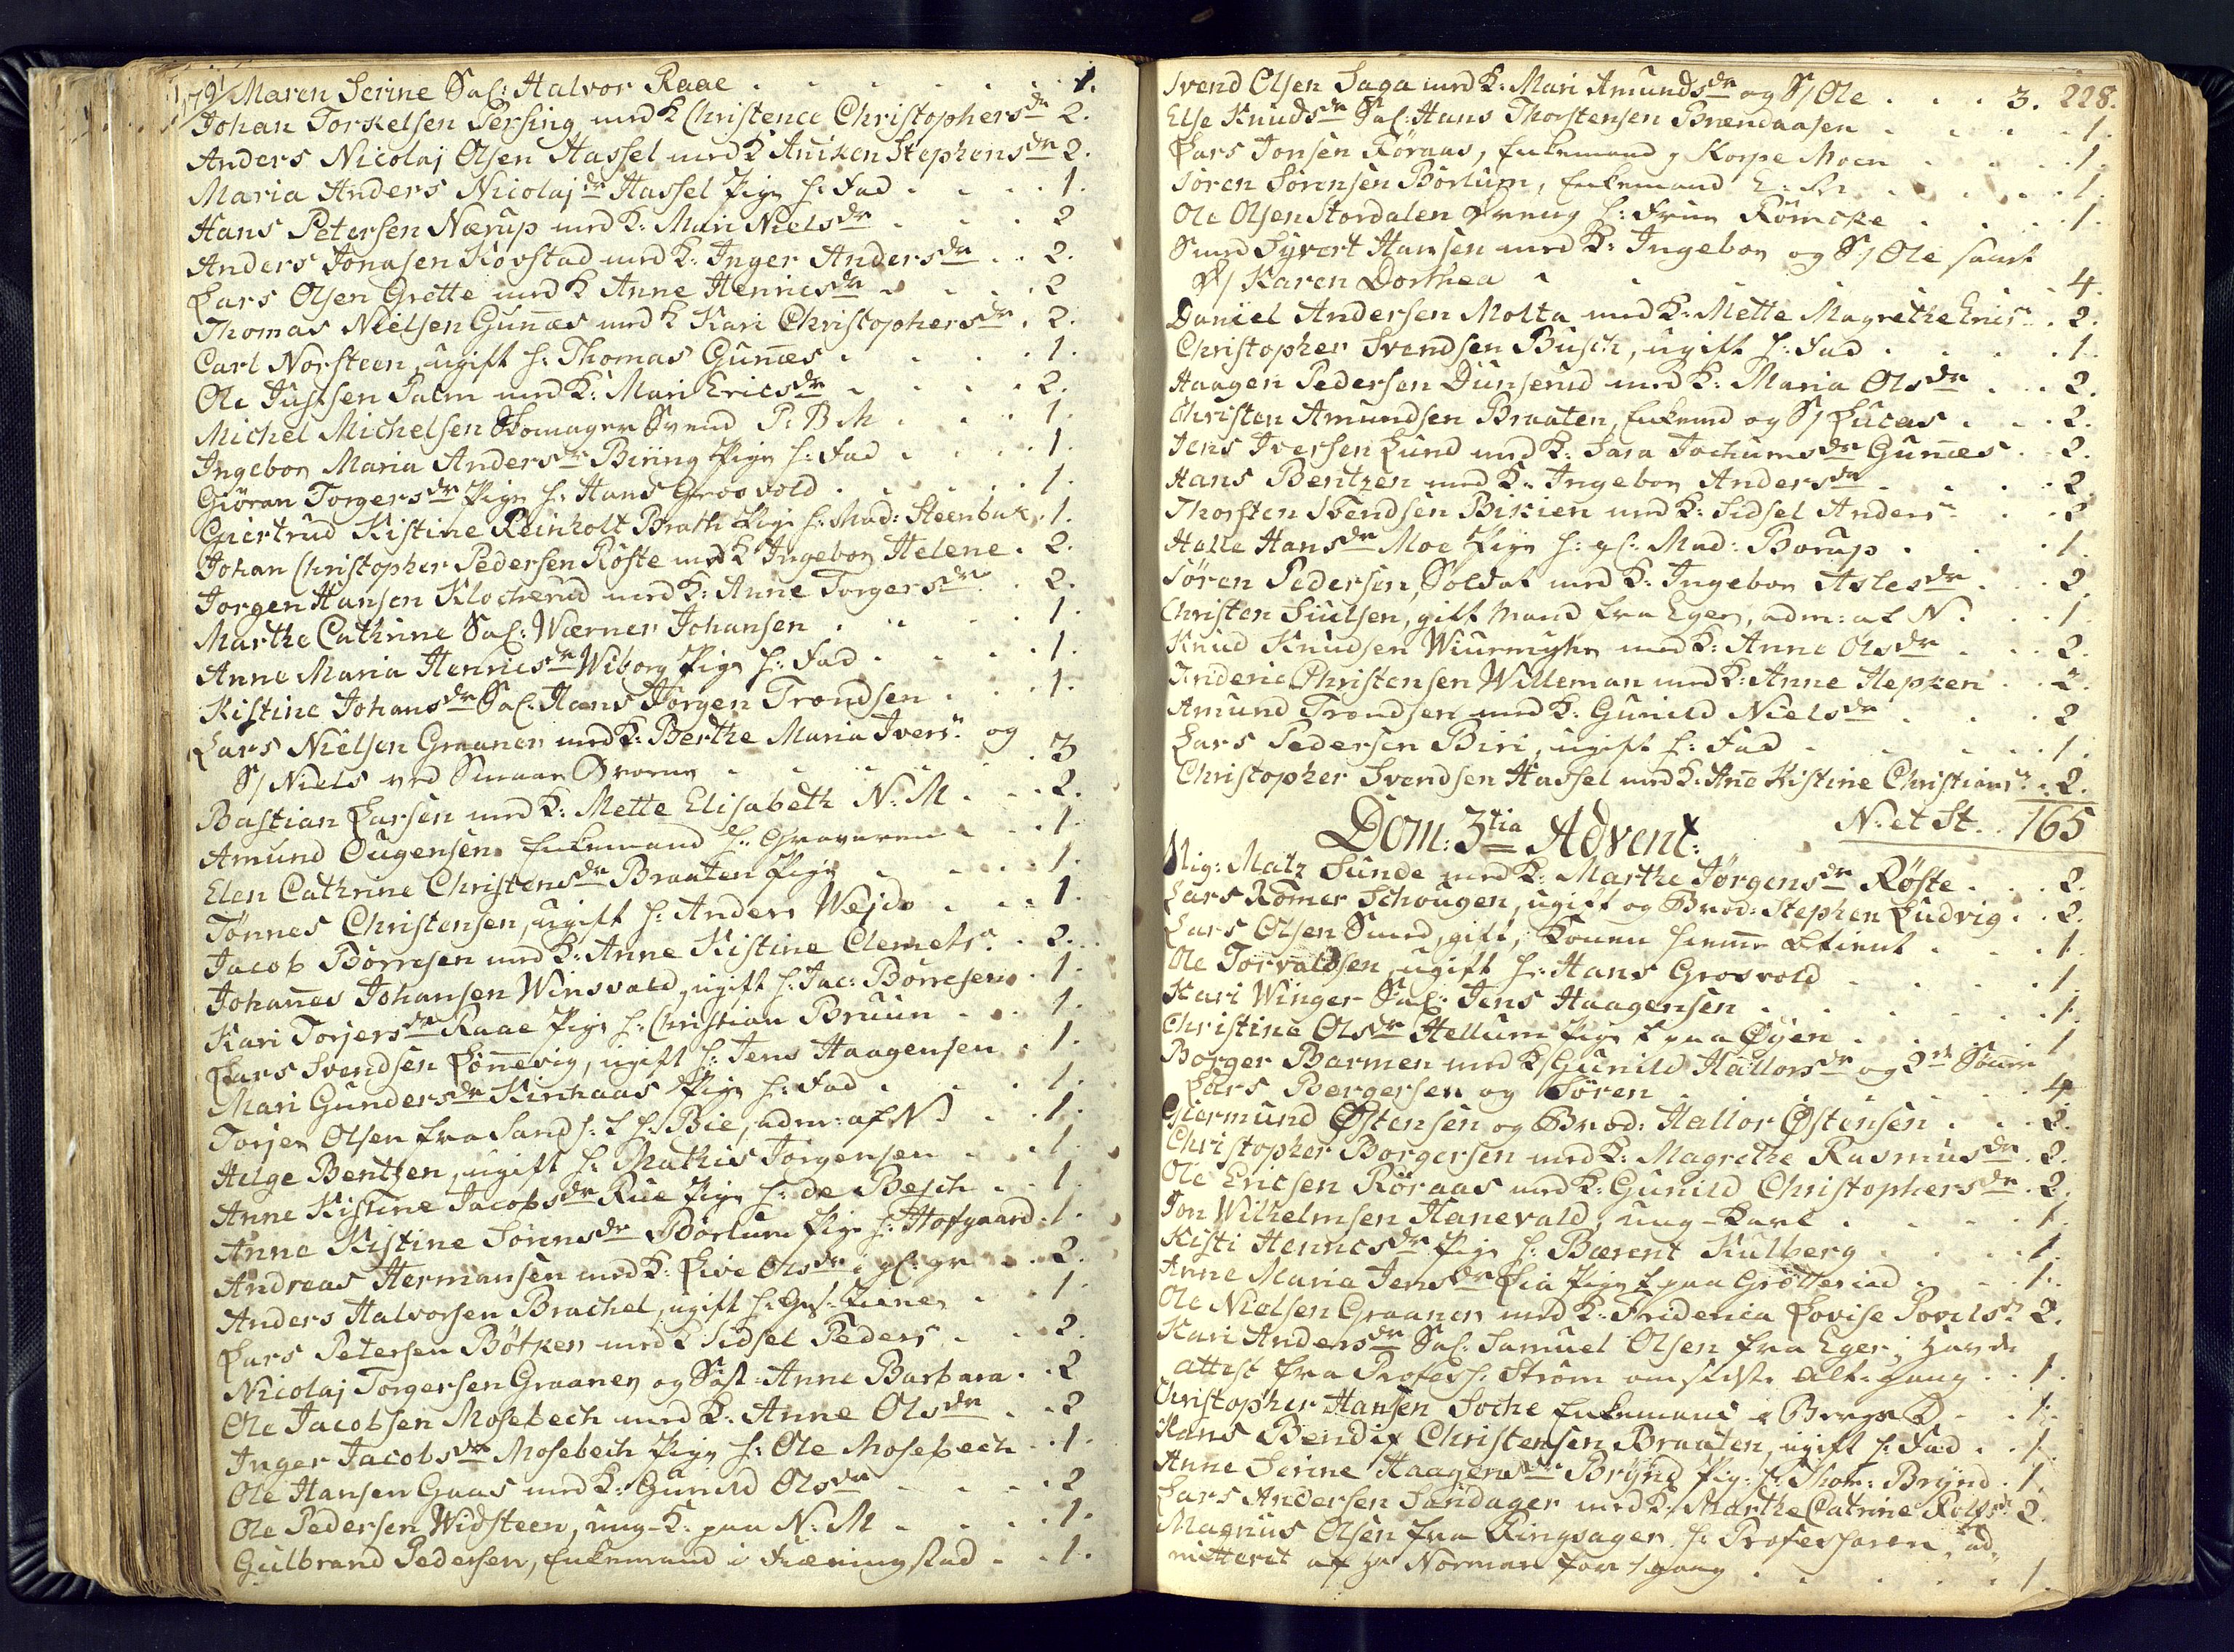 1791/ Maren Serine Sal: Halvor Raae . . . . . . 1.
Johan Torkelsen Persing med K Christence Christophersdr 2.
Anders Nicolaj Olsen Hassel med K Aniken Stephensdr 2.
Maria Anders Nicolajdr Hassel Pige h: Fad . . . . 1.
Hans Petersen Nærup med K: Mari Nielsdr . . . 2
Anders Jonasen Kovstad med K: Inger Andersdr . . 2.
Lars Olsen Grette med K Anne Henricsdr . . . . 2
Thomas Nielsen Gunæs med K Kari Christophersdr . 2.
Carl Norsteen, ugift h: Thomas Gunæs . . . . . 1.
Ole Justsen Palm med K: Mari Ericsdr . . . . 2.
Michel Michelsen Skomager Svend P. B M . . . 1.
Ingebor Maria Andersdr Biring Pige h: Fad . . . . 1.
Giöran Torgersdr Pige h: Hans Grosvold . . . . . 1.
Giertrud Kistine Reinholt Brath Pige h: Mad: Steenbuk . 1.
Johan Christopher Pedersen Röste med K Ingebor Helene . 2.
Jorgen Hansen Klocherud med K: Anne Torgersdr . 2.
Marthe Cathrine Sal: Wærner Johansen . . . . 1.
Anne Maria Henricsdr Wiborg Pige h: Fad . . . . 1.
Kistine Johansdr Sal: Hans Jörgen Trondsen . . . 1.
Lars Nielsen Graaner med K: Berthe Maria Ivers: og
S/ Niels ved Smaae . . . . . 3
Bastian Larsen med K: Mette Elisabeth N: M . . . 2.
Amund Ougensen Enkemand h: Graveren . . . 1.
Elen Cathrine Christensdr Braaten Pige . . . . 1.
Tönnes Christensen, ugift h: Anders Wejde . . . 1.
Jacob Börresen med K: Anne Kistine Clemets: . 2.
Johanes Johansen Winsvold, ugift h: Jac: Börresen . 1.
Kari Torjersdr Raae Pige h: Christian Bruun . . . 1.
Lars Svendsen Lönevig, ugift h: Jens Haagensen . 1.
Mari Gundersdr Kirhaas Pige h: Fad . . . . 1.
Torjer Olsen fra Sands: L h: Bie, adm: af N . . 1.
Helge Bentzen, ugift h: Mathis Jörgensen . . . 1.
Anne Kistine Jacobsdr Rue Pige h: de Besch . . . 1.
Anne Kistine Sörensdr Börlum Pige h: Hofgaard . 1.
Andreas Hermansen med K: Live Olsdr . . . 2.
Anders Halvorsen Brachel, ugift h: . . 1.
Lars Petersen Bötker med K Sidsel Peders: . . 2.
Nicolaj Torgersen Graaner og Söst: Anne Barbara . . 2
Ole Jacobsen Mosebech med K: Anne Olsdr . . . 2
Inger Jacobsdr Mosebech Pige h: Ole Mosebech . . 1.
Ole Hansen Gaas med K: Gunild Olsdr . . . 2
Ole Pedersen Widsteen, ung-K: paa N: M . . . . 1.
Gulbrand Pedersen, Enkemand i . . 1.
Svend Olsen Saga med K: Mari Amundsdr og S/ Ole . . . 3. 228.
Else Knudsdr Sal: Hans Thorstensen Brændaasen . . . . 1.
Lars Jonsen Röraas, Enkemand i Korpe Moen . . . . 1.
Sören Sörensen Börlum, Enkemand . . . . . 1.
Ole Olsen Stordalen Dreng h: Frue Römcke . . . . 1.
Smed Syvert Hansen med K: Ingebor og S/ Ole samt
D/ Karen Dorthea . . . . 4.
Daniel Andersen Molta med K: Mette Magrethe Erics: . . 2.
Christopher Svendsen Busch, ugift h: Fad . . . . . 1.
Haagen Pedersen Dunserud med K: Maria Olsdr . . . 2.
Christen Amundsen Braaten, Enkemd og S/ Lucas . . . 2.
Jens Iversen Lund med K: Sara Jochumsdr Gunæs . 2.
Hans Bentzen med K: Ingebor Andersdr . . . . 2.
Thorsten Svendsen Bikien med K: Sidsel Anders: . . . 2
Helle Hansdr Moe Pige h: gl: Mad: Borup . . . . 1.
Sören Pedersen, Soldat med K: Ingebor Aslesdr . . . 2.
Christen Siulsen, gift Mand fra Eger, adm: af N . . . 1.
Knud Knudsen med K: Anne Olsdr . . . 2.
Frideric Christensen Willeman med K: Anne Hepken . . 2.
Amund Trondsen med K: Gunild Nielsdr . . . . 2
Lars Pedersen Biri, ugift h: Fad . . . . . 1.
Christopher Svendsen Hassel med K: Ane Kistine Christians: . 2.
N: et St. . 165
Dom: 3tia Advent:
Sig: Matz Sunde med K: Marthe Jörgensdr Röste . . . 2.
Lars Römer Schougen, ugift og Brod: Stephen Ludvig . . 2.
Lars Olsen Smed, gift, Konen hieme betient . . . 1.
Ole Torvaldsen, ugift h: Hans Grosvold . . . . . 1.
Kari Winger Sal: Jens Haagensen . . . . . . 1.
Christine Olsdr Hellum Pige paa Öyen . . . . 1
Borger Barmen med K/ Gunild Hallorsdr og 2de Sönner
Lars Bergersen og Sören . . . . . . 4
Giermund Östensen og Brod: Hallor Östensen . . . 2.
Christopher Borgersen med K: Magrethe Rasmusdr . 2.
Ole Ericsen Röraas med K: Gunild Christophersdr . 2.
Jon Wilhelmsen Hanevald, ung-Karl . . . . 1.
Kisti Henricsdr Pige h: Bærent Kulberg . . . . 1.
Anne Maria Jensdr Lia Pige paa Grötteriud . . . 1.
Ole Nielsen Graaner med K: Friderica Lovise Povels: 2.
Kari Andersdr Sal: Samuel Olsen fra Eger; havde
attest fra Profess: Ström om sidste Alt: gang . . 1.
Christopher Hansen Soche Enkemand i . . 1.
Hans Bendix Christensen Braaten, ugift h: Fad . . 1.
Anne Serine Haagensdr Brÿnd Pige h: Thom: Brÿnd . 1.
Lars Andersen Sandager med K: Marthe Catrine Rolfs: 2.
Magnus Olsen fra Ringsager h: Professoren, ad-
mitteret af Hr Norman for 1 gang . . . . . 1.